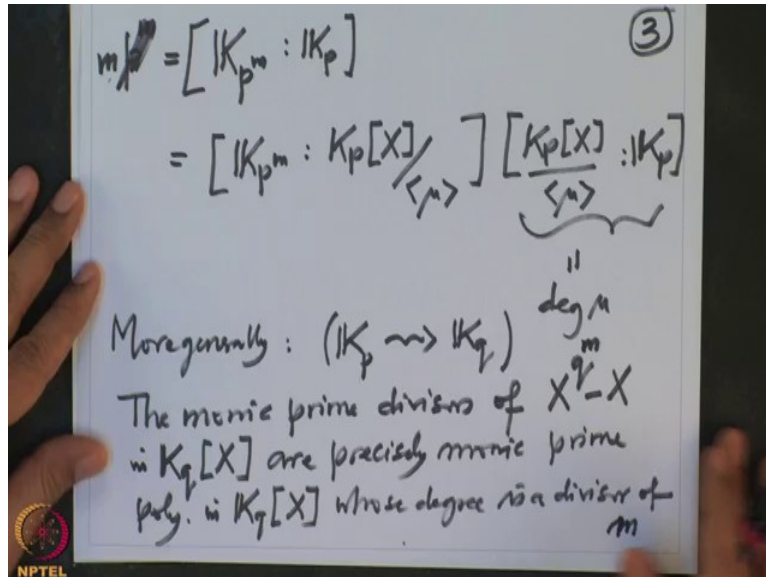 ③
m = [𝕂_{p^m} : 𝕂_p]
= [𝕂_{p^m} : K_p[X]/<μ>] [K_p[X]/<μ> : 𝕂_p]
||
deg μ
More generally : (𝕂_p ⇝ 𝕂_q)
The monic prime divisors of X^{q^m} - X
in K_q[X] are precisely monic prime
poly. in K_q[X] whose degree is a divisor of
m
NPTEL